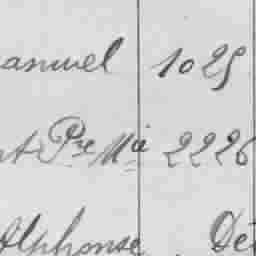 anuel 1025
t Pre Mie 2226
Alphonse Dé